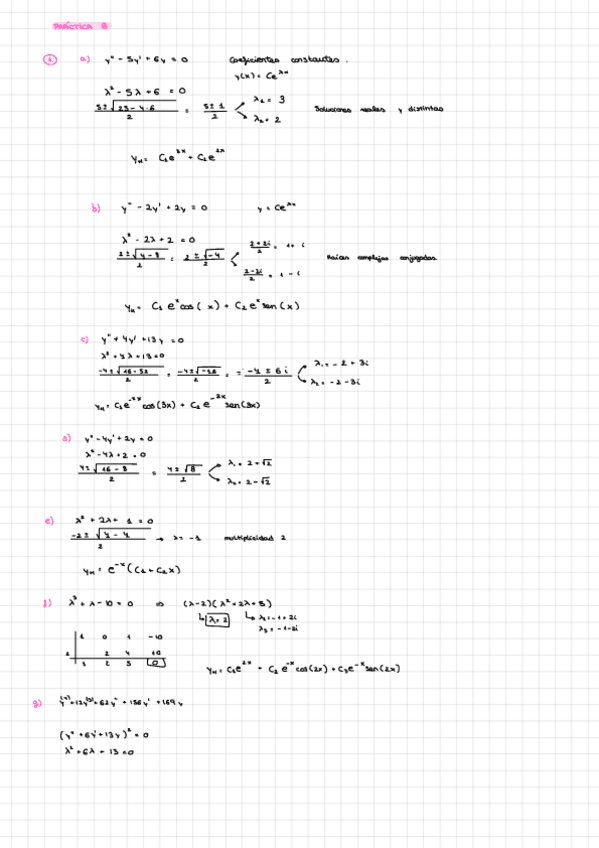 PRÁCTICA 8
1 a) y'' - 5y' + 6y = 0 Coeficientes constantes.
y(x) = Ce^λx
λ² - 5λ + 6 = 0
5 ± √25 - 4·6 / 2 = 5 ± 1 / 2 λ₁ = 3 Soluciones reales y distintas
λ₂ = 2
y_H = C₁e^3x + C₂e^2x
b) y'' - 2y' + 2y = 0 y = Ce^λx
λ² - 2λ + 2 = 0
2 ± √4 - 8 / 2 = 2 ± √-4 / 2 2 + 2i / 2 = 1 + i Raíces complejas conjugadas
2 - 2i / 2 = 1 - i
y_H = C₁ e^x cos( x) + C₂ e^x sen(x)
c) y'' + 4y' + 13y = 0
λ² + 4λ + 13 = 0
-4 ± √16 - 52 / 2 = -4 ± √-36 / 2 = -4 ± 6i / 2 λ₁ = -2 + 3i
λ₂ = -2 - 3i
y_H = C₁e^-2x cos(3x) + C₂ e^-2x sen(3x)
d) y'' - 4y' + 2y = 0
λ² - 4λ + 2 = 0
4 ± √16 - 8 / 2 = 4 ± √8 / 2 λ₁ = 2 + √2
λ₂ = 2 - √2
e) λ² + 2λ + 1 = 0
-2 ± √4 - 4 / 2 → λ = -1 multiplicidad 2
y_H = e^-x (C₁ + C₂x)
f) λ³ + λ - 10 = 0 ⇒ (λ-2)(λ² + 2λ + 5)
↳ λ = 2 ↳ λ₂ = -1 + 2i
λ₃ = -1 - 2i
1 0 1 -10
2 2 4 10
1 2 5 0
y_H = C₁e^2x + C₂ e^-x cos(2x) + C₃e^-x sen(2x)
g) y^(4) + 12y^(3) + 62y'' + 156y' + 169y
(y'' + 6y' + 13y)² = 0
λ² + 6λ + 13 = 0